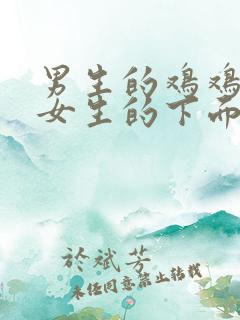 男生的鸡鸡
女生的下面
於斌芳
未经同意禁止转载